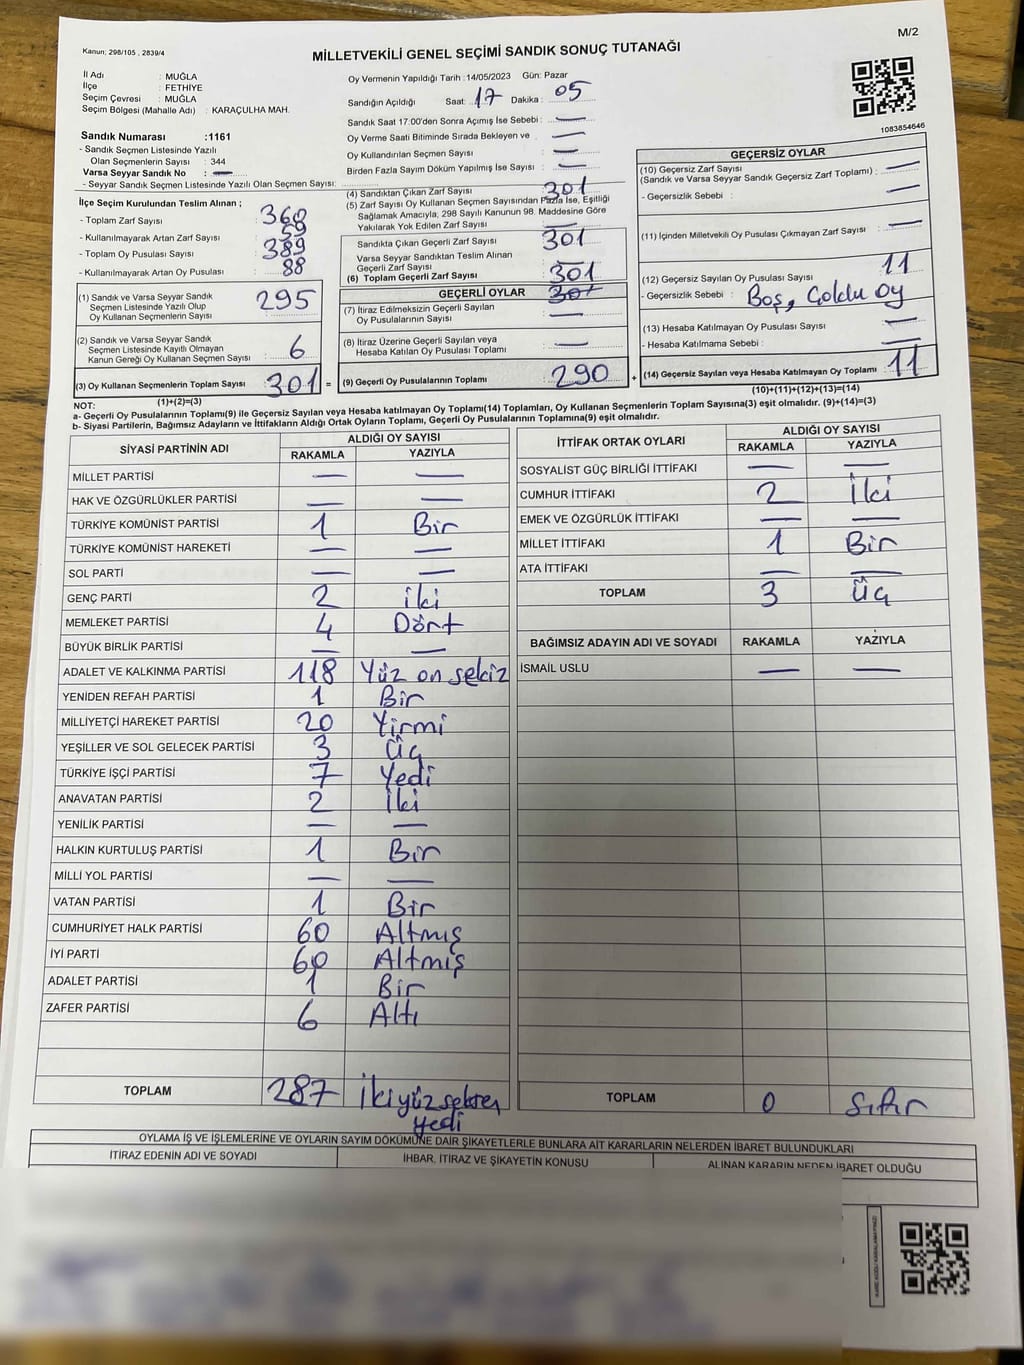 M/2
Kanun; 298/105 , 2839/4
MİLLETVEKİLİ GENEL SEÇİMİ SANDIK SONUÇ TUTANAĞI
İl Adı : MUĞLA
İlçe : FETHİYE
Seçim Çevresi : MUĞLA
Seçim Bölgesi (Mahalle Adı) : KARAÇULHA MAH.
Sandık Numarası :1161
- Sandık Seçmen Listesinde Yazılı
Olan Seçmenlerin Sayısı : 344
Varsa Seyyar Sandık No : —
- Seyyar Sandık Seçmen Listesinde Yazılı Olan Seçmen Sayısı:
İlçe Seçim Kurulundan Teslim Alınan ;
- Toplam Zarf Sayısı 360
- Kullanılmayarak Artan Zarf Sayısı 59
- Toplam Oy Pusulası Sayısı 389
- Kullanılmayarak Artan Oy Pusulası 88
(1) Sandık ve Varsa Seyyar Sandık
Seçmen Listesinde Yazılı Olup
Oy Kullanan Seçmenlerin Sayısı 295
(2) Sandık ve Varsa Seyyar Sandık
Seçmen Listesinde Kayıtlı Olmayan
Kanun Gereği Oy Kullanan Seçmen Sayısı 6
(3) Oy Kullanan Seçmenlerin Toplam Sayısı 301 =
(1)+(2)=(3)
Oy Vermenin Yapıldığı Tarih :14/05/2023 Gün: Pazar
Sandığın Açıldığı Saat: 17 Dakika : 05
Sandık Saat 17:00'den Sonra Açımış İse Sebebi : —
Oy Verme Saati Bitiminde Sırada Bekleyen ve —
Oy Kullandırılan Seçmen Sayısı —
Birden Fazla Sayım Döküm Yapılmış İse Sayısı : —
(4) Sandıktan Çıkan Zarf Sayısı 301
(5) Zarf Sayısı Oy Kullanan Seçmen Sayısından Fazla İse, Eşitliği
Sağlamak Amacıyla, 298 Sayılı Kanunun 98. Maddesine Göre
Yakılarak Yok Edilen Zarf Sayısı —
Sandıkta Çıkan Geçerli Zarf Sayısı 301
Varsa Seyyar Sandıktan Teslim Alınan
Geçerli Zarf Sayısı —
(6) Toplam Geçerli Zarf Sayısı 301
GEÇERLİ OYLAR 301
(7) İtiraz Edilmeksizin Geçerli Sayılan
Oy Pusulalarının Sayısı —
(8) İtiraz Üzerine Geçerli Sayılan veya
Hesaba Katılan Oy Pusulası Toplamı —
(9) Geçerli Oy Pusulalarının Toplamı 290 +
1083854646
GEÇERSİZ OYLAR
(10) Geçersiz Zarf Sayısı
(Sandık ve Varsa Seyyar Sandık Geçersiz Zarf Toplamı) : —
- Geçersizlik Sebebi : —
(11) İçinden Milletvekili Oy Pusulası Çıkmayan Zarf Sayısı —
(12) Geçersiz Sayılan Oy Pusulası Sayısı 11
- Geçersizlik Sebebi : Boş, Coldu oy
(13) Hesaba Katılmayan Oy Pusulası Sayısı —
- Hesaba Katılmama Sebebi : —
(14) Geçersiz Sayılan veya Hesaba Katılmayan Oy Toplamı 11
(10)+(11)+(12)+(13)=(14)
NOT:
a- Geçerli Oy Pusulaları Toplamı(9) ile Geçersiz Sayılan veya Hesaba katılmayan Oy Toplamı(14) Toplamları, Oy Kullanan Seçmenlerin Toplam Sayısına(3) eşit olmalıdır. (9)+(14)=(3)
b- Siyasi Partilerin, Bağımsız Adayların ve İttifakların Aldığı Ortak Oyların Toplamı, Geçerli Oy Pusulalarının Toplamına(9) eşit olmalıdır.
SİYASİ PARTİNİN ADI ALDIĞI OY SAYISI
RAKAMLA YAZIYLA
MİLLET PARTİSİ — —
HAK VE ÖZGÜRLÜKLER PARTİSİ — —
TÜRKİYE KOMÜNİST PARTİSİ 1 Bir
TÜRKİYE KOMÜNİST HAREKETİ — —
SOL PARTİ — —
GENÇ PARTİ 2 iki
MEMLEKET PARTİSİ 4 Dört
BÜYÜK BİRLİK PARTİSİ — —
ADALET VE KALKINMA PARTİSİ 118 Yüz on sekiz
YENİDEN REFAH PARTİSİ 1 Bir
MİLLİYETÇİ HAREKET PARTİSİ 20 Yirmi
YEŞİLLER VE SOL GELECEK PARTİSİ 3 Üç
TÜRKİYE İŞÇİ PARTİSİ 7 Yedi
ANAVATAN PARTİSİ 2 İki
YENİLİK PARTİSİ — —
HALKIN KURTULUŞ PARTİSİ 1 Bir
MİLLİ YOL PARTİSİ — —
VATAN PARTİSİ 1 Bir
CUMHURİYET HALK PARTİSİ 60 Altmış
İYİ PARTİ 60 Altmış
ADALET PARTİSİ 1 Bir
ZAFER PARTİSİ 6 Altı
TOPLAM 287 İkiyüzseksen
yedi
İTTİFAK ORTAK OYLARI ALDIĞI OY SAYISI
RAKAMLA YAZIYLA
SOSYALİST GÜÇ BİRLİĞİ İTTİFAKI — —
CUMHUR İTTİFAKI 2 İki
EMEK VE ÖZGÜRLÜK İTTİFAKI — —
MİLLET İTTİFAKI 1 Bir
ATA İTTİFAKI — —
TOPLAM 3 Üç
BAĞIMSIZ ADAYIN ADI VE SOYADI RAKAMLA YAZIYLA
İSMAİL USLU — —
TOPLAM 0 Sıfır
OYLAMA İŞ VE İŞLEMLERİNE VE OYLARIN SAYIM DÖKÜMÜNE DAİR ŞİKAYETLERLE BUNLARA AİT KARARLARIN NELERDEN İBARET BULUNDUKLARI
İTİRAZ EDENİN ADI VE SOYADI İHBAR, İTİRAZ VE ŞİKAYETİN KONUSU ALINAN KARARIN NEDEN İBARET OLDUĞU